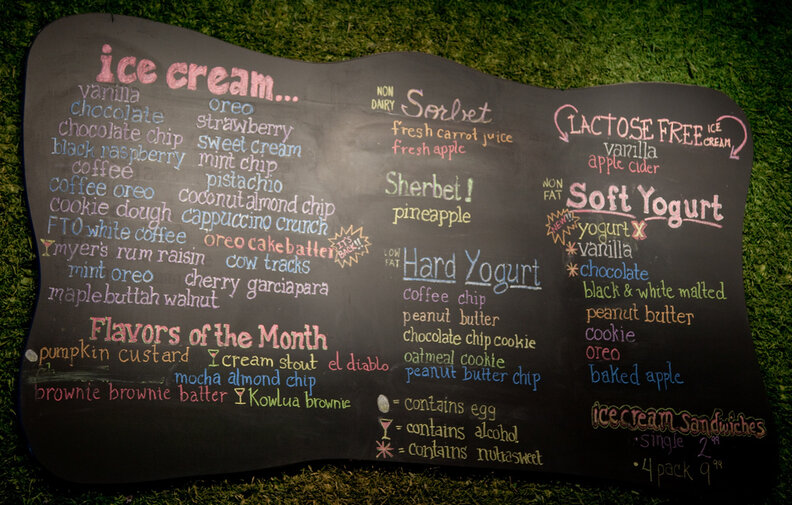 ice cream...
vanilla
chocolate
chocolate chip
black raspberry
coffee
coffee oreo
cookie dough
FTO white coffee
myer's rum raisin
mint oreo
maple buttah walnut
oreo
strawberry
sweet cream
mint chip
pistachio
coconut almond chip
cappuccino crunch
oreo cake batter IT'S BACK!!
cow tracks
cherry garciapara
Flavors of the Month
pumpkin custard cream stout el diablo
mocha almond chip
brownie brownie batter Kowlua brownie
NON DAIRY Sorbet
fresh carrot juice
fresh apple
Sherbet!
pineapple
LOW FAT Hard Yogurt
coffee chip
peanut butter
chocolate chip cookie
oatmeal cookie
peanut butter chip
= contains egg
= contains alcohol
= contains nutrasweet
LACTOSE FREE ICE CREAM
vanilla
apple cider
NON FAT Soft Yogurt
NEW!! yogurt X
vanilla
chocolate
black & white malted
peanut butter
cookie
oreo
baked apple
ice cream sandwiches
single 2.99
• 4 pack 9.99